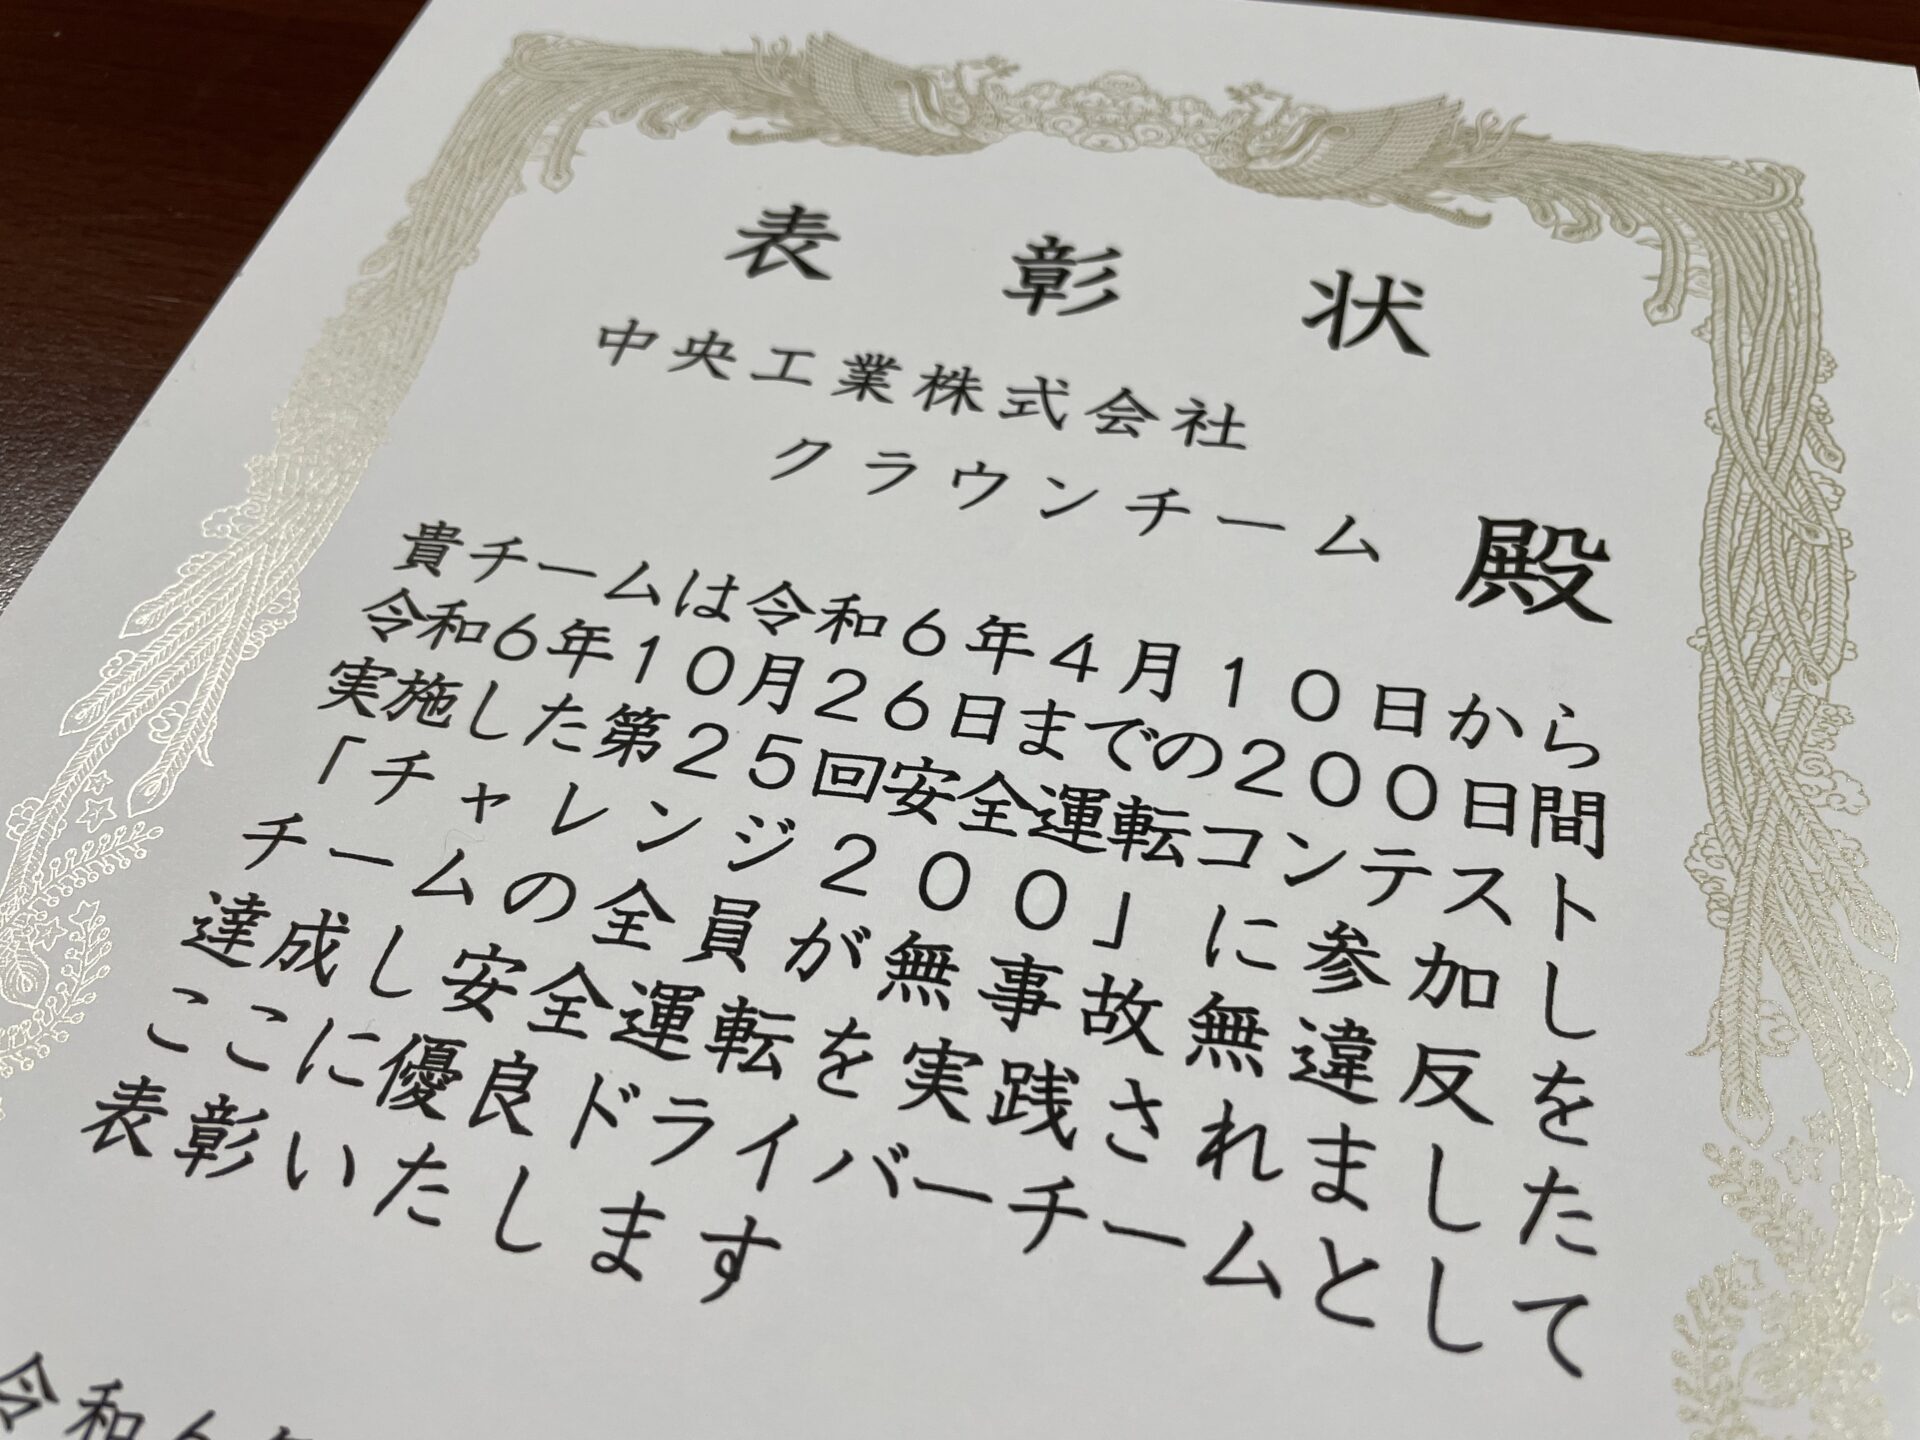 表彰状
中央工業株式会社
クラウンチーム 殿
貴チームは令和6年4月10日から
令和6年10月26日までの200日間
実施した第25回安全運転コンテスト
「チャレンジ200」に参加し
チームの全員が無事故無違反を
達成し安全運転を実践されました
ここに優良ドライバーチームとして
表彰いたします
令和6年